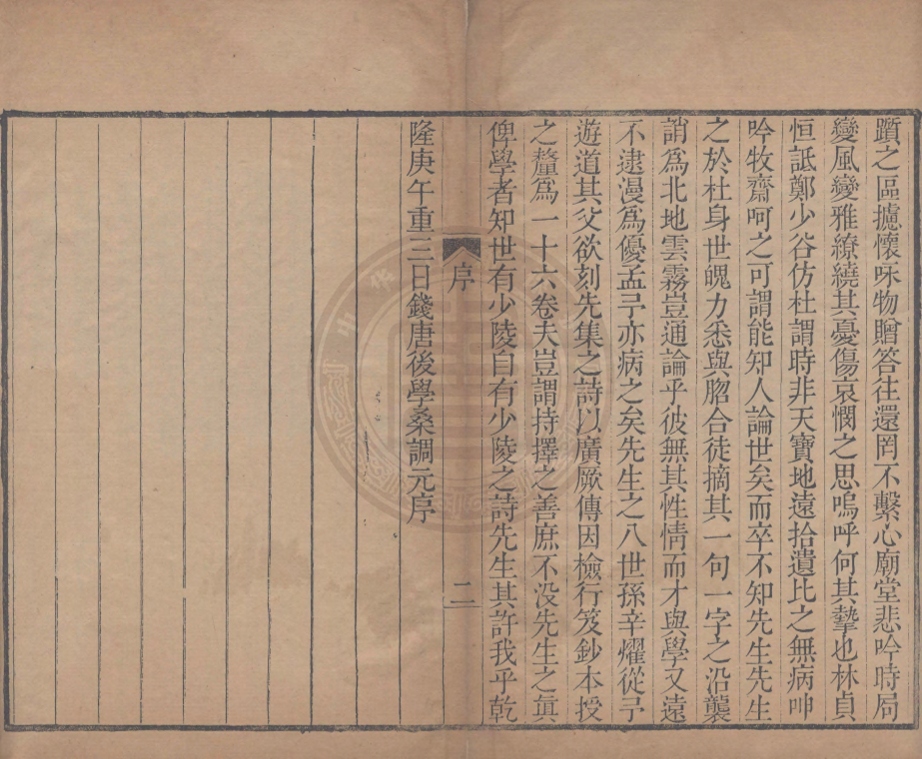 躓之區攄懷咏物贈答往還罔不繫心廟堂悲吟時局
變風變雅繚繞其憂傷哀憫之思嗚呼何其摯也林貞
恒詆鄭少谷仿杜謂時非天寶地遠拾遺比之無病呻
吟牧齋呵之可謂能知人論世矣而卒不知先生先生
之於杜身世魄力悉與脗合徒摘其一句一字之沿襲
誚爲北地雲霧豈通論乎彼無其性情而才與學又遠
不逮漫爲優孟予亦病之矣先生之八世孫辛燿從予
遊道其父欲刻先集之詩以廣厥傳因檢行笈鈔本授
之釐爲一十六卷夫豈謂持擇之善庶不没先生之眞
俾學者知世有少陵自有少陵之詩先生其許我乎乾
序
二
隆庚午重三日錢唐後學桑調元序